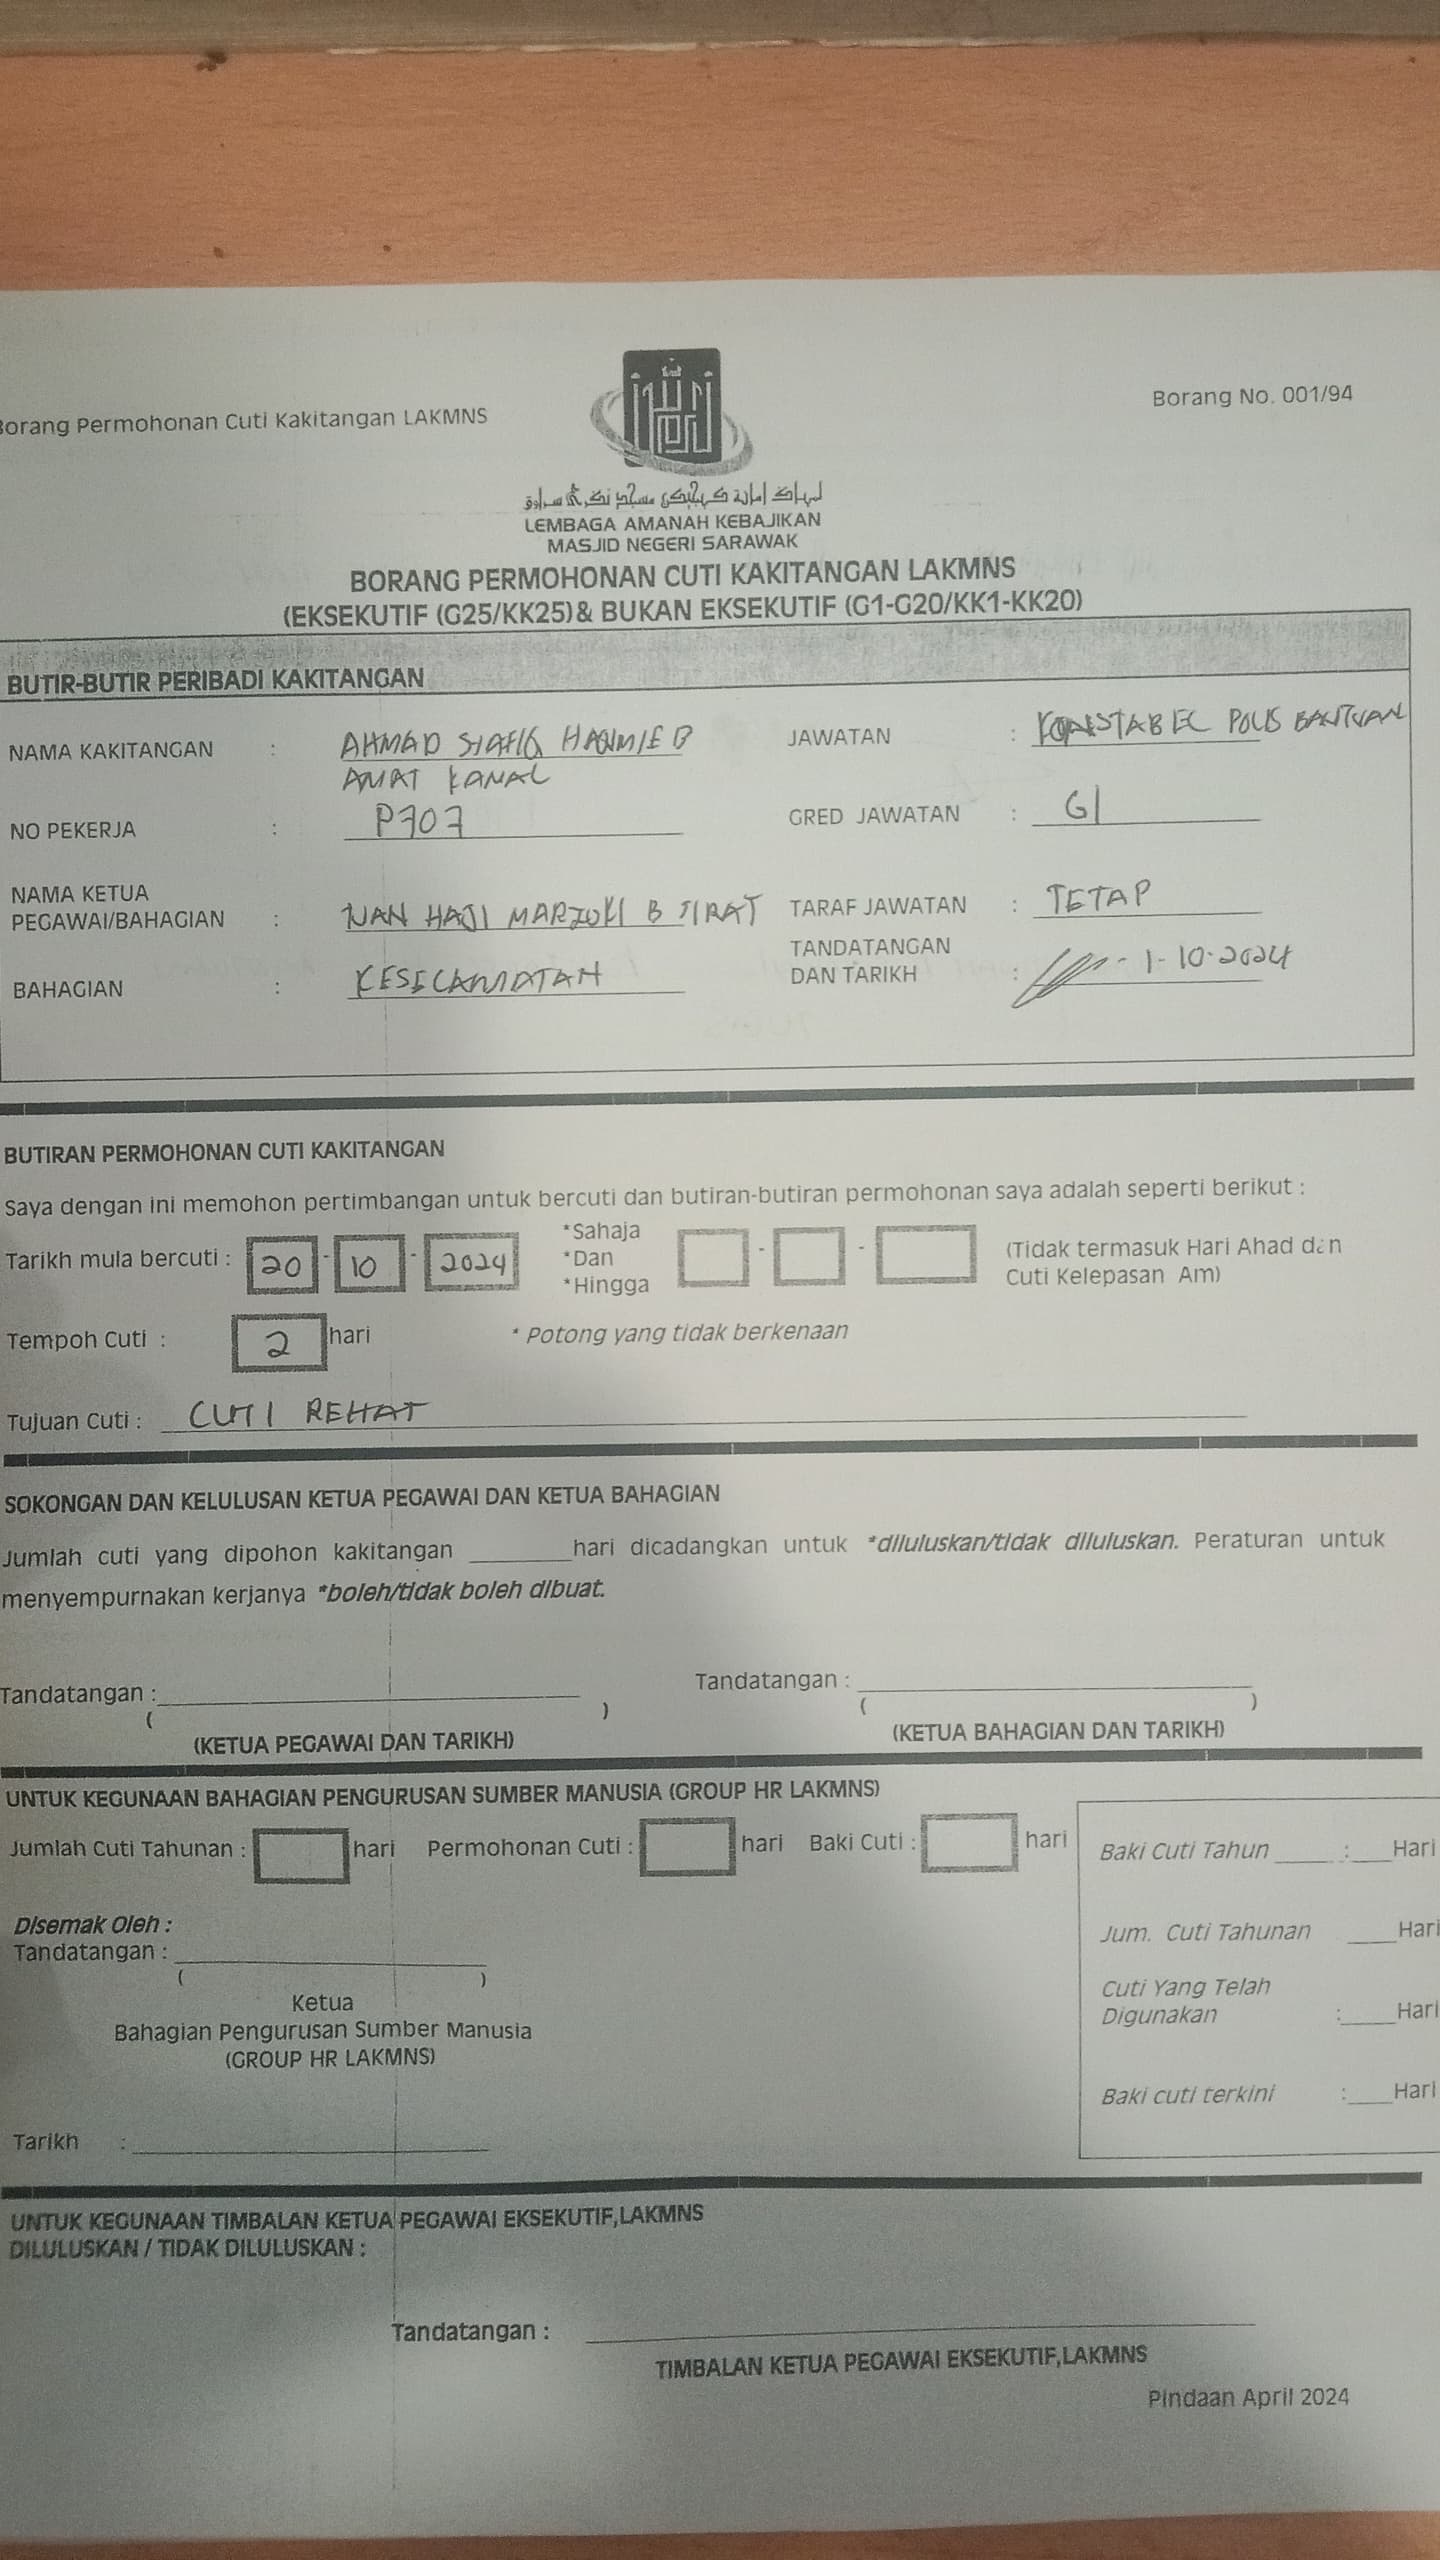 Borang Permohonan Cuti Kakitangan LAKMNS
Borang No. 001/94
لمباݢ امانة كبجيكن مسجد نݢري سراوق
LEMBAGA AMANAH KEBAJIKAN
MASJID NEGERI SARAWAK
BORANG PERMOHONAN CUTI KAKITANGAN LAKMNS
(EKSEKUTIF (G25/KK25)& BUKAN EKSEKUTIF (G1-G20/KK1-KK20)
BUTIR-BUTIR PERIBADI KAKITANGAN
NAMA KAKITANGAN : AHMAD SYAFIQ B JAWATAN : KONSTABEL POLIS BANTUAN
AMAT KANAL
NO PEKERJA : P707 GRED JAWATAN : G1
NAMA KETUA
PEGAWAI/BAHAGIAN : HAJI MARZUKI B TARAF JAWATAN : TETAP
TANDATANGAN
BAHAGIAN : KESELAMATAN DAN TARIKH : - 1-10-2024
BUTIRAN PERMOHONAN CUTI KAKITANGAN
Saya dengan ini memohon pertimbangan untuk bercuti dan butiran-butiran permohonan saya adalah seperti berikut :
Tarikh mula bercuti : 20 - 10 - 2024 *Sahaja *Dan *Hingga - - (Tidak termasuk Hari Ahad dan
Cuti Kelepasan Am)
Tempoh Cuti : 2 hari * Potong yang tidak berkenaan
Tujuan Cuti : CUTI REHAT
SOKONGAN DAN KELULUSAN KETUA PEGAWAI DAN KETUA BAHAGIAN
Jumlah cuti yang dipohon kakitangan ________hari dicadangkan untuk *diluluskan/tidak diluluskan. Peraturan untuk
menyempurnakan kerjanya *boleh/tidak boleh dibuat.
Tandatangan : Tandatangan :
( ) ( )
(KETUA PEGAWAI DAN TARIKH) (KETUA BAHAGIAN DAN TARIKH)
UNTUK KEGUNAAN BAHAGIAN PENGURUSAN SUMBER MANUSIA (GROUP HR LAKMNS)
Jumlah Cuti Tahunan : hari Permohonan Cuti : hari Baki Cuti : hari
Baki Cuti Tahun _____ :___Hari
Disemak Oleh :
Tandatangan :
( )
Ketua
Bahagian Pengurusan Sumber Manusia
(GROUP HR LAKMNS)
Tarikh :
Jum. Cuti Tahunan ____Hari
Cuti Yang Telah
Digunakan :____Hari
Baki cuti terkini :____Hari
UNTUK KEGUNAAN TIMBALAN KETUA PEGAWAI EKSEKUTIF,LAKMNS
DILULUSKAN / TIDAK DILULUSKAN :
Tandatangan :
TIMBALAN KETUA PEGAWAI EKSEKUTIF,LAKMNS
Pindaan April 2024